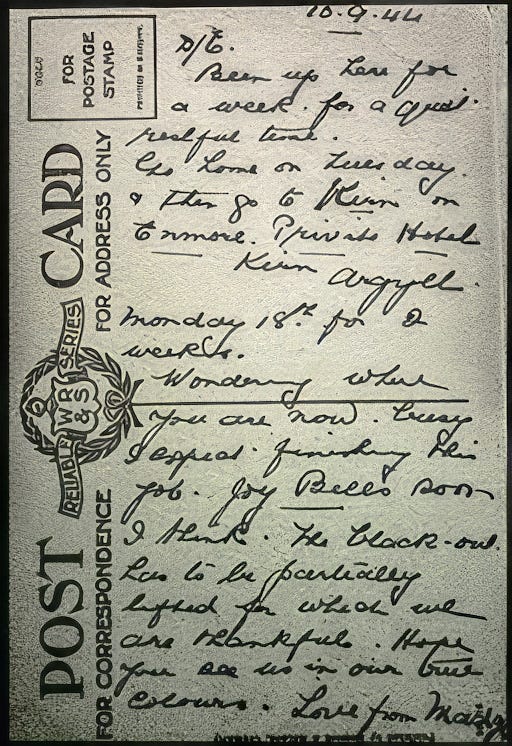 10.9.44
D/E.
Been up here for
a week. for a quiet
restful time.
Go home on Tuesday.
& then go to Kirn on
Enmore. Private Hotel
Kirn Argyll.
Monday 18th for 2
weeks.
Wondering where
you are now. Busy
I expect finishing this
job. Joy Bells soon
I think. The black-out
has to be partially
lifted for which we
are thankful. Hope
you see us in our true
colours. Love from
POST CARD
FOR CORRESPONDENCE
FOR ADDRESS ONLY
RELIABLE
WR
& S
SERIES
FOR
POSTAGE
STAMP